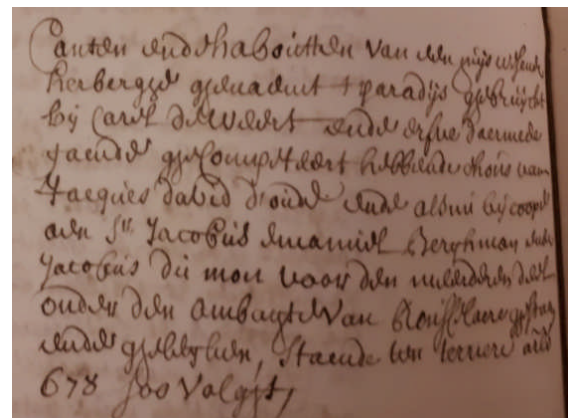 Canten ende haboutten van een huijs wesende
herberghe genaemt t paradijs gebruijckt
bij Carel de weert ende erfve daermede
gaende gecompeteert hebbende thois van
Jacques david d'oude ende alsnu bij coope
aen Sr. Jacobus emanuel Berghman ende
Jacobus du mon voor den meerderen deel
onder den ambagte van Rousselaere gestaen
ende geleghen, staende ten terriere art
678 soo volght,